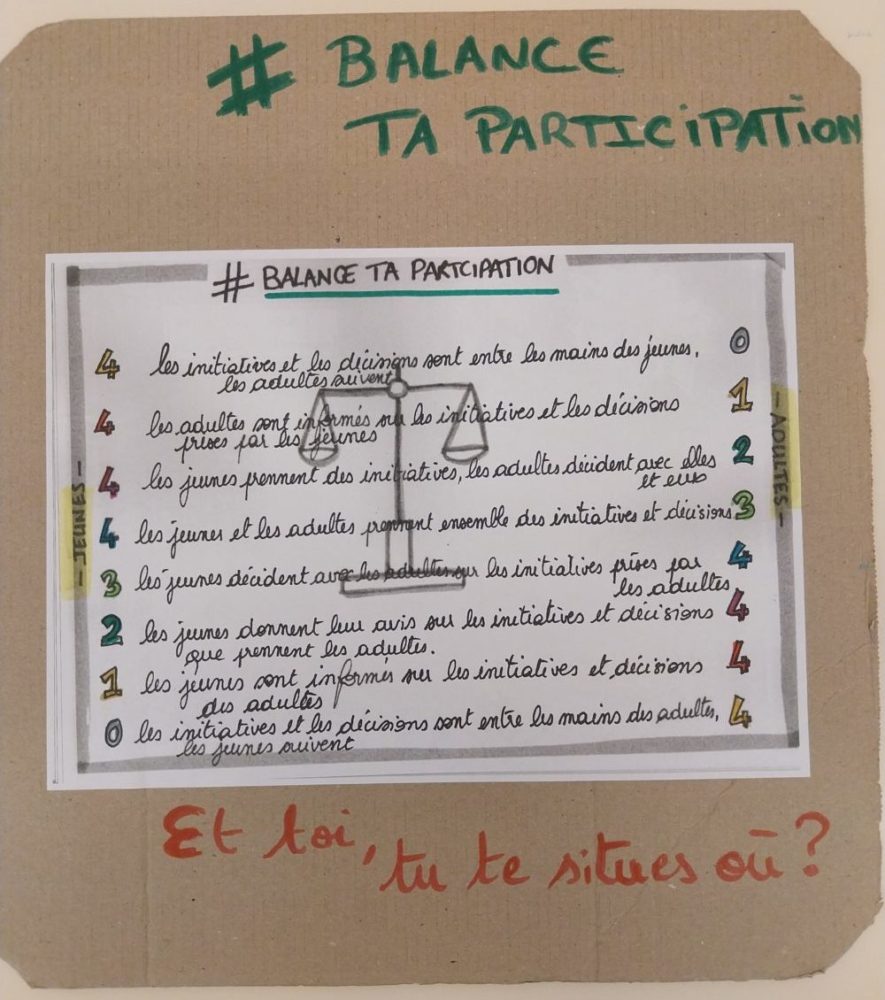 # BALANCE
TA PARTICIPATION
# BALANCE TA PARTCIPATION
4 les initiatives et les décisions sont entre les mains des jeunes, 0
les adultes suivent
4 les adultes sont informés sur les initiatives et les décisions 1
prises par les jeunes
4 les jeunes prennent des initiatives, les adultes décident avec elles 2
et eux
4 les jeunes et les adultes prennent ensemble des initiatives et décisions 3
3 les jeunes décident avec les adultes sur les initiatives prises par 4
les adultes
2 les jeunes donnent leur avis sur les initiatives et décisions 4
que prennent les adultes.
1 les jeunes sont informés sur les initiatives et décisions 4
des adultes
0 les initiatives et les décisions sont entre les mains des adultes, 4
les jeunes suivent
- JEUNES -
- ADULTES -
Et toi,
tu te situes où ?